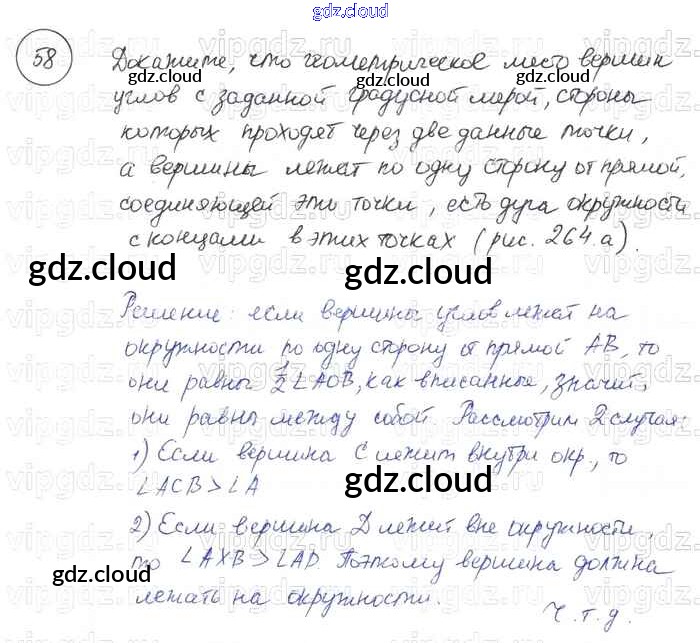 gdz.cloud
58 Докажите, что геометрическое место вершин
углов с заданной градусной мерой, стороны
которых проходят через две данные точки,
а вершины лежат по одну сторону от прямой,
соединяющей эти точки, есть дуга окружности
с концами в этих точках (рис. 264.а).
Решение: если вершины углов лежат на
окружности по одну сторону от прямой AB, то
они равны 1/2 ∠AOB, как вписанные, значит,
они равны между собой. Рассмотрим 2 случая:
1) Если вершина C лежит внутри окр., то
∠ACB > ∠A
2) Если вершина D лежит вне окружности,
то ∠AXB > ∠AD. Поэтому вершина должна
лежать на окружности.
Ч.т.д.